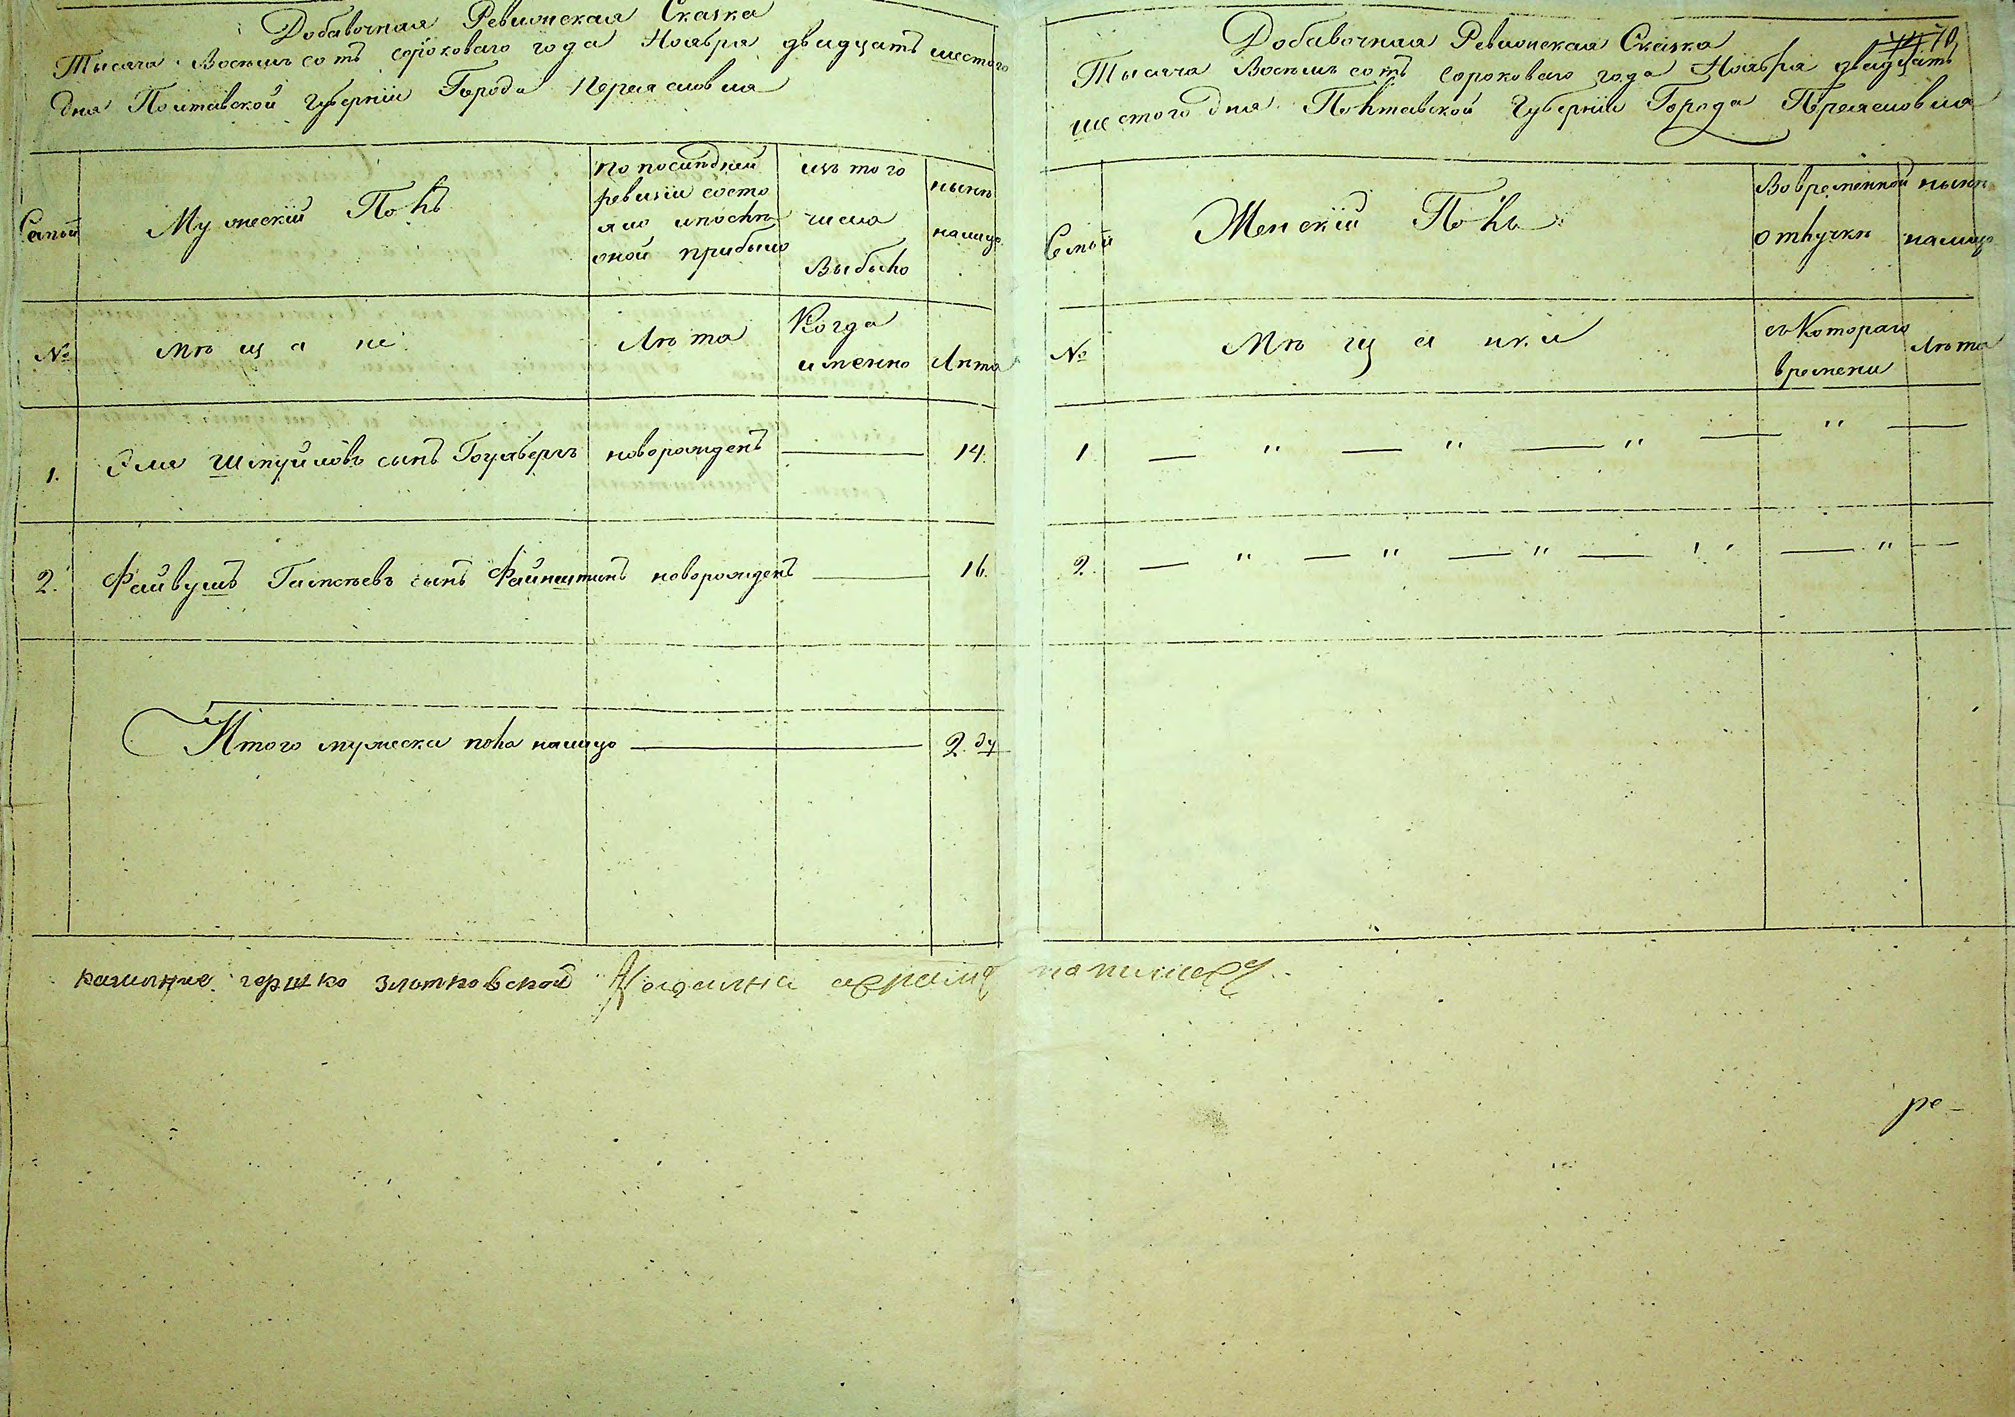 Добавочная Ревизская Сказка
Тысяча Восемь сотъ сороковаго года Ноября двадцать шестого
дня Полтавской Губерніи Города Переяславля
Семьи
Мужескій Полъ
по последней
ревизіи состо
яло и после
оной прибыло
изъ того
числа
Выбыло
нынѣ
налицо
№
мѣщане
Лѣта
Когда
именно
Лѣта
1. Эля Шмуйловъ сынъ новорожденъ 14.
2. Файвушъ сынъ Файнштинъ новорожденъ 16.
Итого мужеска пола налицо 2 ду
70
Добавочная Ревизская Сказка
Тысяча Восемь сотъ сороковаго года Ноября двадцать
шестого дня Полтавской Губерніи Города Переяславля
Семьи
Женскій Полъ
Во временной
отлучкѣ
нынѣ
налицо
№
Мѣщанки
съ Котораго
времени
Лѣта
1 — " — " — " — " —
2. — " — " — " — " — " —
гершко златковской
ре-